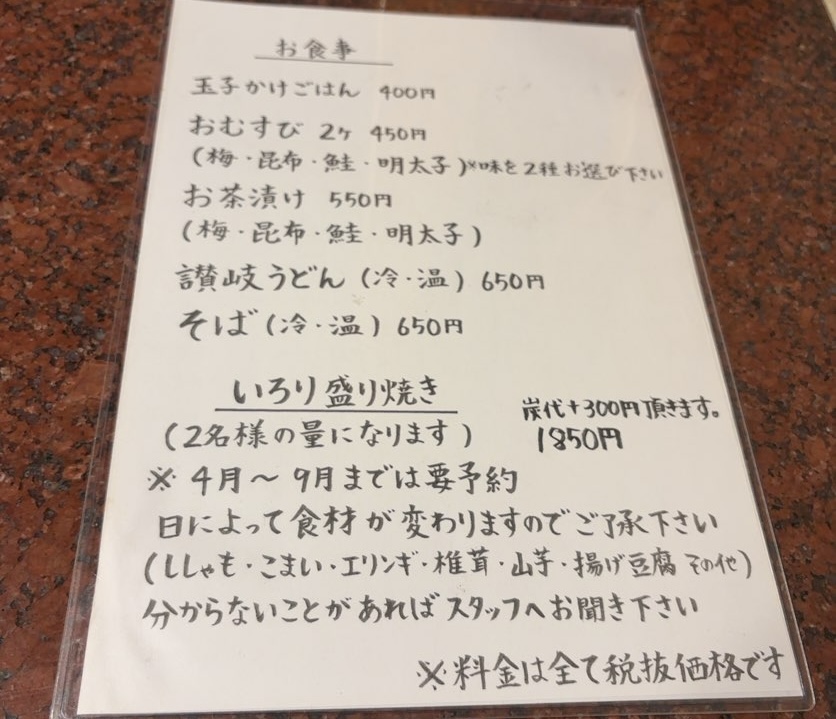 お食事
玉子かけごはん 400円
おむすび 2ヶ 450円
(梅・昆布・鮭・明太子)※味を2種お選び下さい
お茶漬け 550円
(梅・昆布・鮭・明太子)
讃岐うどん(冷・温) 650円
そば(冷・温) 650円
いろり盛り焼き
炭代+300円頂きます。
(2名様の量になります) 1850円
※ 4月〜9月までは要予約
日によって食材が変わりますのでご了承下さい
(ししゃも・こまい・エリンギ・椎茸・山芋・揚げ豆腐 その他)
分からないことがあればスタッフへお聞き下さい
※料金は全て税抜価格です